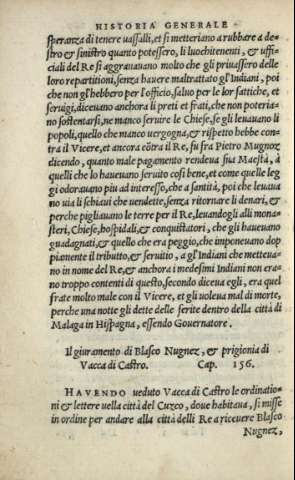 HISTORIA GENERALE
speranza di tenere uassalli, et si metteriano a rubbare a de-
stro & sinistro quanto potessero, li luochitenenti, & uffi-
ciali del Re si aggrauauano molto che gli priuassero delle
loro repartitioni, senza hauere maltrattato gl'Indiani, poi
che non gl'hebbero per l'officio, saluo per le lor fattiche, et
seruigi, diceuano anchora li preti et frati, che non poteria-
no sostentarsi, ne manco seruire le Chiese, se gli leuauano li
popoli, quello che manco uergogna, & rispetto hebbe con-
tra il Vicere, et ancora cōtra il Re, fu fra Pietro Mugnoz
dicendo, quanto male pagamento rendeua sua Maestà, à
quelli che lo haueuano seruito cosi bene, et come quelle leg
gi odorauano piu ad interesso, che a santità, poi che leuaua
no uia li schiaui che uendette, senza ritornare li denari, &
perche pigliauano le terre per il Re, leuandogli alli mona-
steri, Chiese, hospidali, & conquistatori, che gli haueuano
guadagnati, & quello che era peggio, che imponeuano dop
piamente il tributto, & seruito, a gl'Indiani che metteua-
no in nome del Re, & anchora i medesimi Indiani non era-
no troppo contenti di questo, secondo diceua egli, era quel
frate molto male con il Vicere, et gli uoleua mal di morte,
perche una notte gli dette delle ferite dentro della città di
Malaga in Hispagna, essendo Gouernatore.
Il giuramento di Blasco Nugnez, & prigionia di
Vacca di Castro. Cap. 156.
HAVENDO ueduto Vacca di Castro le ordinatio-
ni & lettere uella città del Cuzco, doue habitaua, si misse
in ordine per andare alla città delli Re a riceuere Blasco
Nugnez,